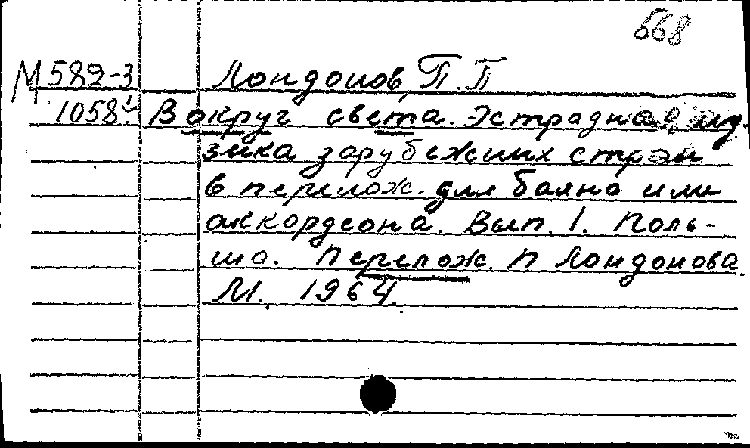 668
М 582-3 Лондонов П.П
1058 Вокруг света. Эстрадная му-
зыка зарубежных стран
в перелож. для баяна или
аккордеона. Вып. 1. Поль-
ша. Перелож. П Лондонова
М. 1964.